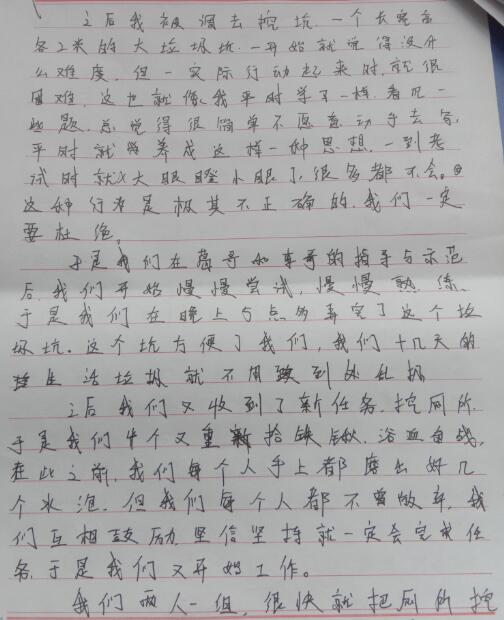 之后我被调去挖坑,一个长宽高
各2米的大垃圾坑,一开始就觉得没什
么难度,但一实际行动起来时,就很
困难,这也就像我平时学习一样,看见一
些题,总觉得很简单不愿意动手去写,
平时就养成这样一种思想,一到考
试时就大眼瞪小眼了,很多都不会。
这种行为是极其不正确的,我们一定
要杜绝。
于是我们在 哥和 哥的指导与示范
后,我们开始慢慢尝试,慢慢熟练,
于是我们在晚上5点的 完了这个垃
圾坑。这个坑方便了我们,我们十几天的
生活垃圾就不用 到处乱扔
之后我们又收到了新任务,挖厕所,
于是我们4个又重新拾 锹,浴血奋战,
在此之前,我们每个人手上都磨出好几
个水泡,但我们每个人都不曾放弃,我
们互相鼓励,坚信坚持就一定会完成任
务,于是我们又开始工作。
我们两人一组,很快就把厕所挖